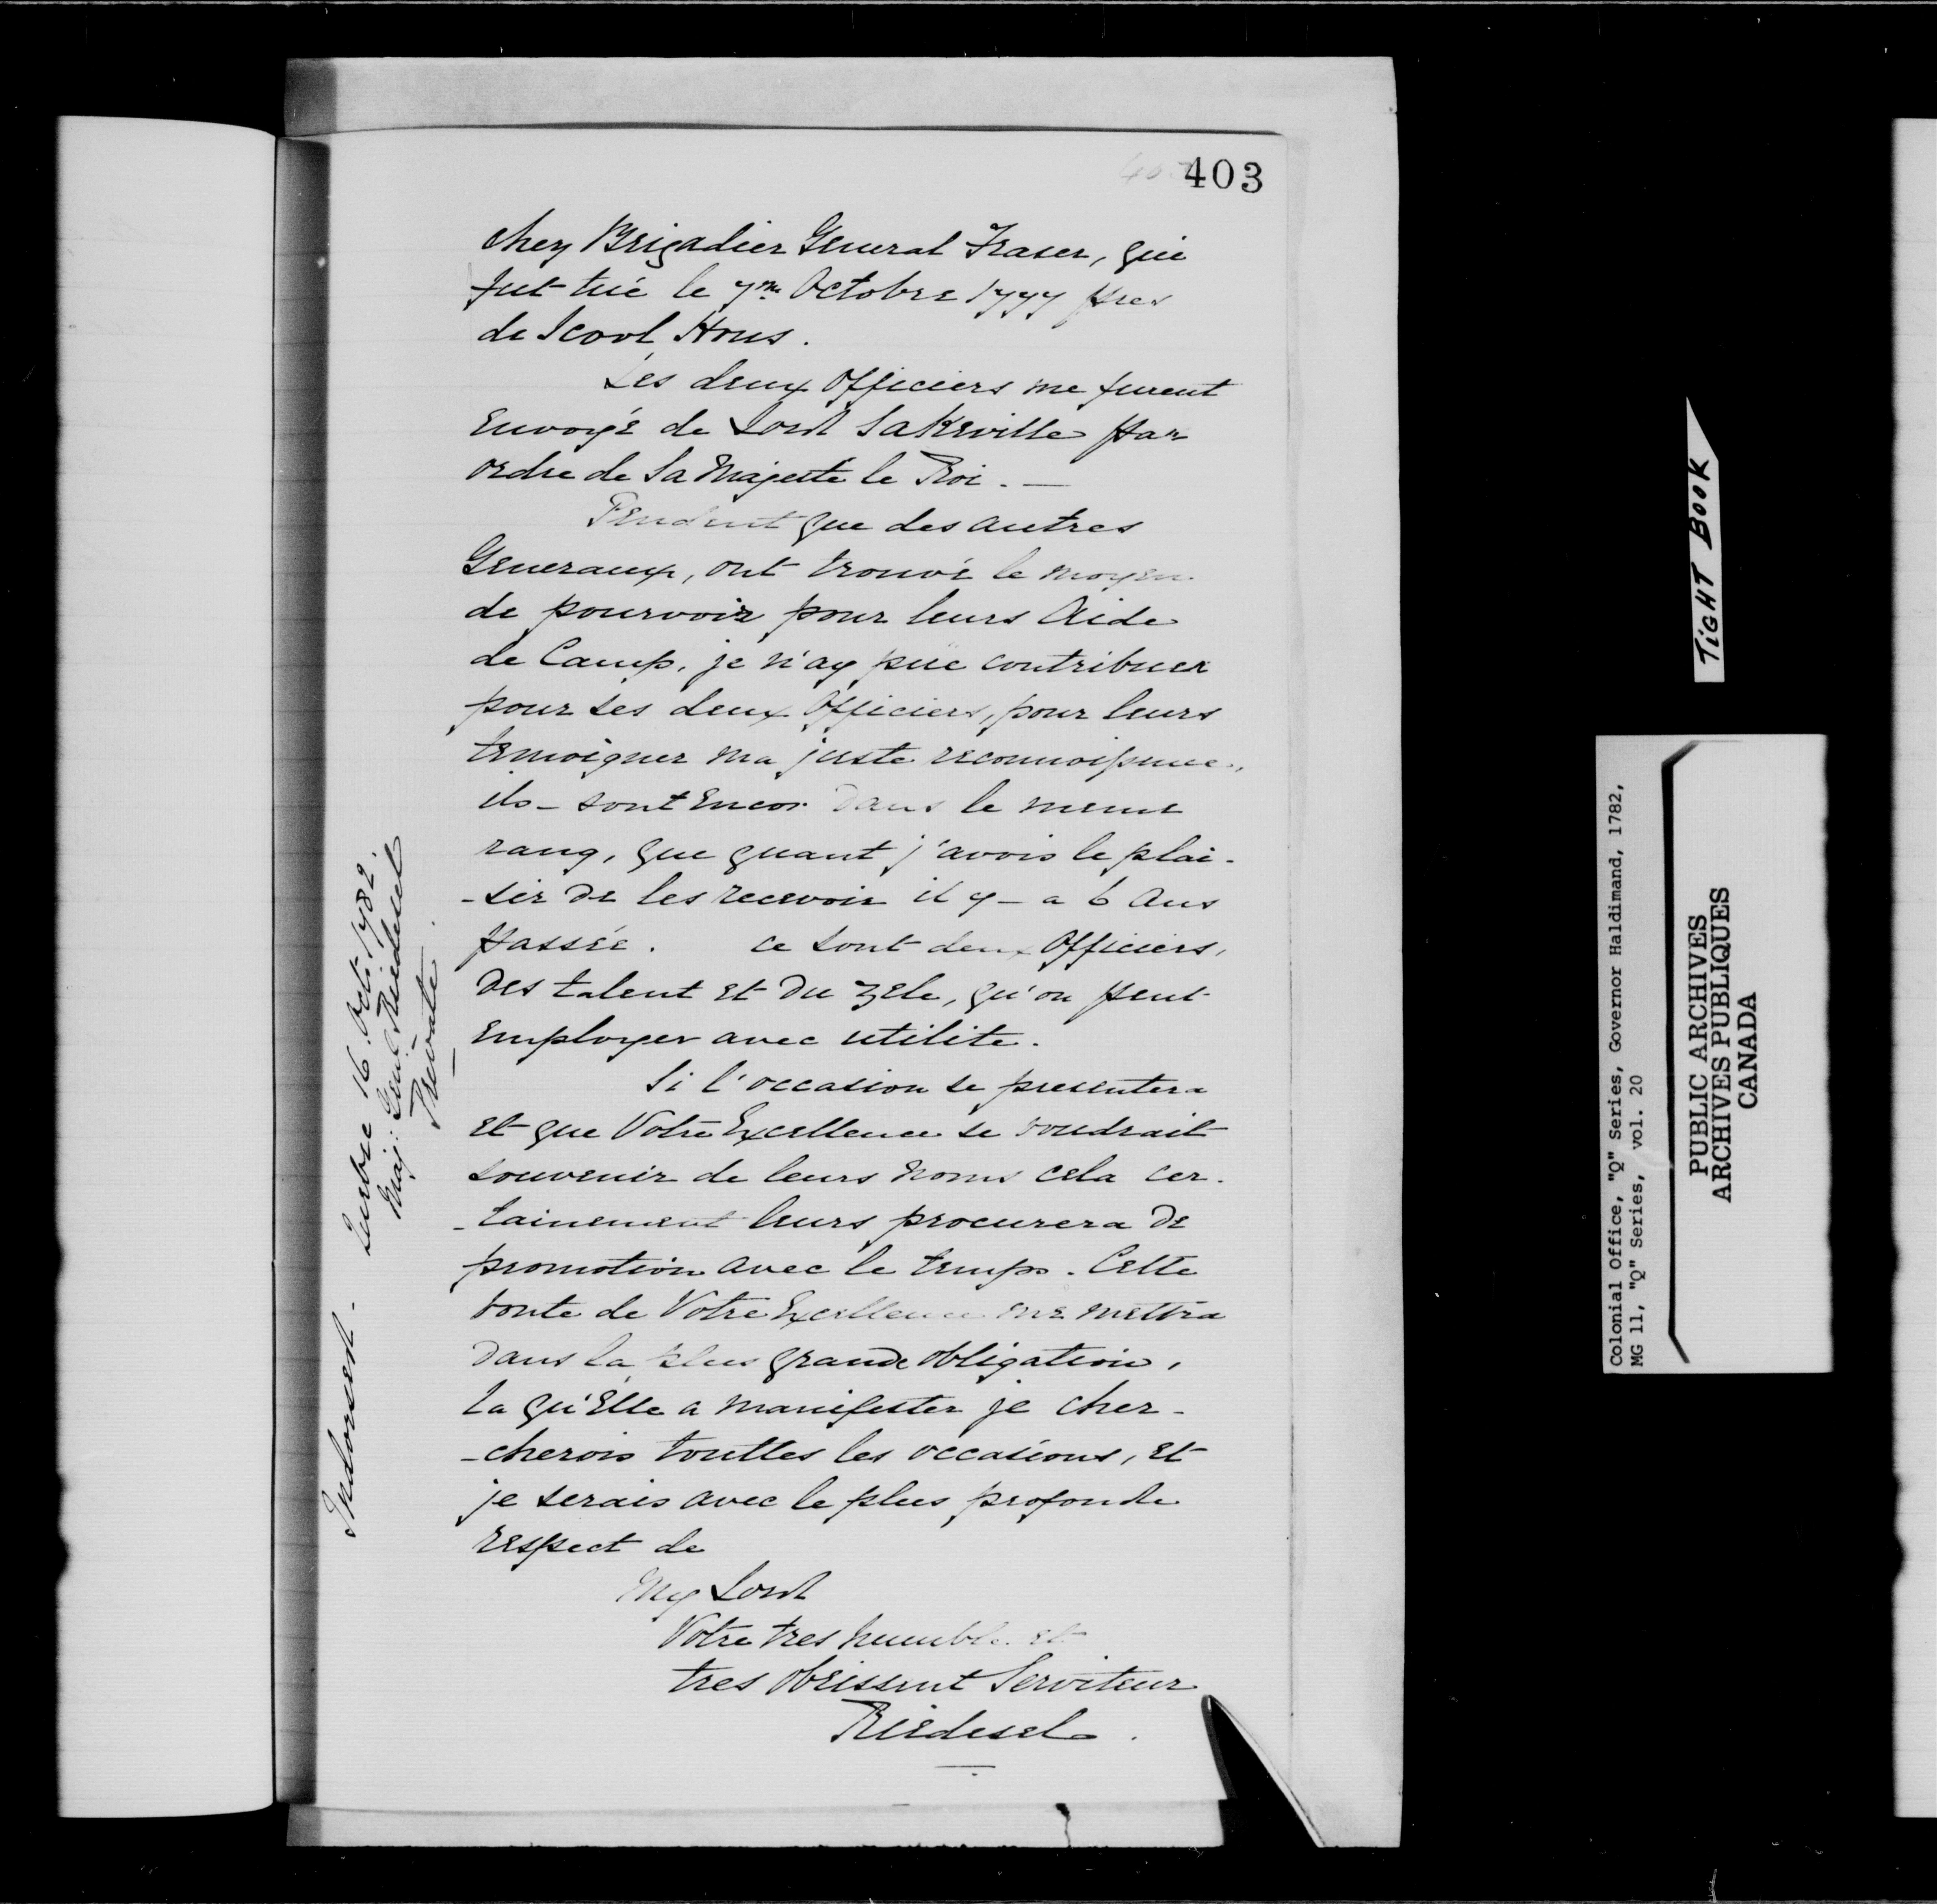 403
chez Brigadier General Fraser, qui
fut tué le 7me Octobre 1777 pres
de Scool Hous.
Les deux Officiers me furent
Envoyé de Lord Sakeville par
ordre de Sa Majesté le Roi. —
Pendent que des autres
Generaux, ont trouvé le moyen
de pourvoir pour leurs Aide
de Camp, je n'ay püe contribuer
pour ses deux Officiers, pour leurs
temoigner ma juste reconnoissance,
ils - sont Encor dans le meme
rang, que quant j'avois le plai-
-sir de les recevoir il y - a 6 Ans
passée. ce sont deux Officiers,
des talent et du zele, qu'on peut
Employer avec utilite.
Si l'occasion se presentera
et que Votre Excellence se voudrait
souvenir de leurs noms cela cer-
-tainement leurs procurera de
promotion avec le temps. Cette
bonte de Votre Excellence me mettra
dans la plus grande obligation,
la qu'Elle a manifester je cher-
-cherois touttes les occasions, et
je serais avec le plus profonde
respect de
My Lord
Votre tres humble et
tres obeissent Serviteur
Riedesel.
Indorsed - 16. Oct: 1782.
Maj: Genl. Riedesel
Private.
TIGHT BOOK
Colonial Office, "Q" Series, Governor Haldimand, 1782,
MG 11, "Q" Series, vol. 20
PUBLIC ARCHIVES
ARCHIVES PUBLIQUES
CANADA